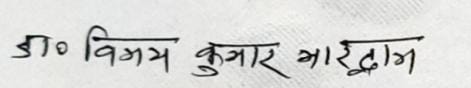 डा० विजय कुमार भारद्वाज